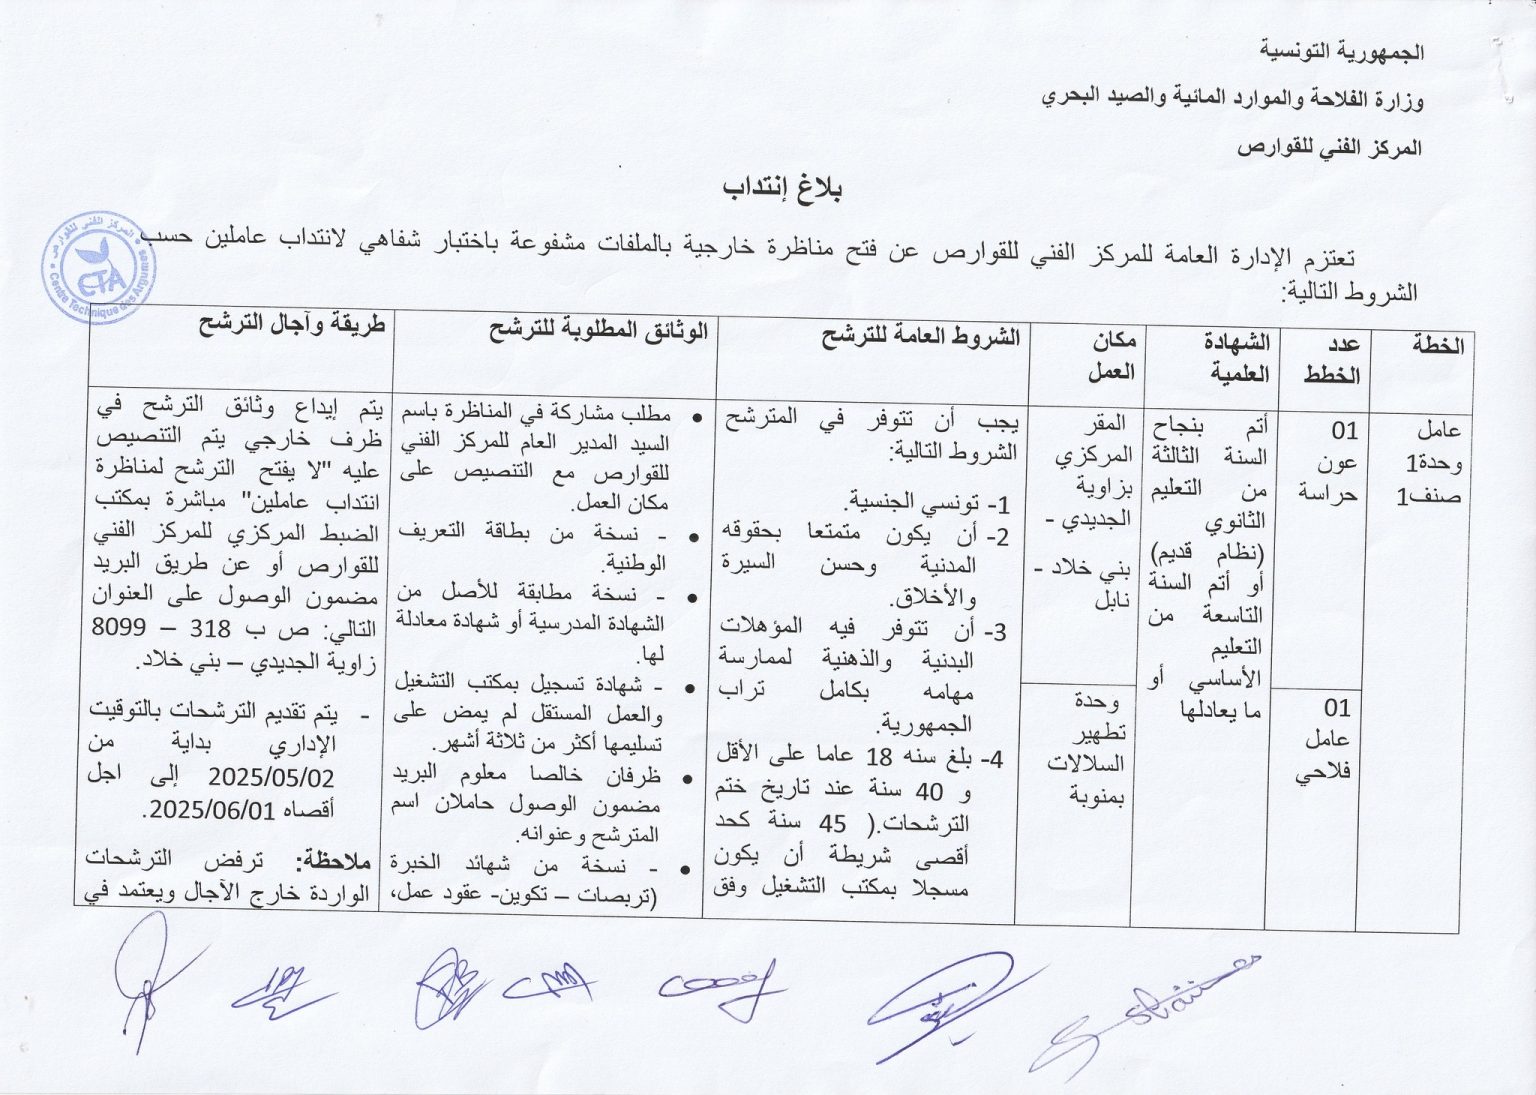 الجمهورية التونسية
وزارة الفلاحة والموارد المائية والصيد البحري
المركز الفني للقوارص
بلاغ إنتداب
تعتزم الإدارة العامة للمركز الفني للقوارص عن فتح مناظرة خارجية بالملفات مشفوعة باختبار شفاهي لانتداب عاملين حسب
الشروط التالية:
المركز الفني للقوارص
CTA
Centre Technique des Agrumes
الخطة
عدد
الخطط
الشهادة
العلمية
مكان
العمل
الشروط العامة للترشح
الوثائق المطلوبة للترشح
طريقة وآجال الترشح
عامل
وحدة1
صنف1
01
عون
حراسة
أتم بنجاح
السنة الثالثة
من التعليم
الثانوي
(نظام قديم)
أو أتم السنة
التاسعة من
التعليم
الأساسي أو
ما يعادلها
المقر
المركزي
بزاوية
الجديدي -
بني خلاد -
نابل
يجب أن تتوفر في المترشح
الشروط التالية:
1- تونسي الجنسية.
2- أن يكون متمتعا بحقوقه
المدنية وحسن السيرة
والأخلاق.
3- أن تتوفر فيه المؤهلات
البدنية والذهنية لممارسة
مهامه بكامل تراب
الجمهورية.
4- بلغ سنه 18 عاما على الأقل
و 40 سنة عند تاريخ ختم
الترشحات.( 45 سنة كحد
أقصى شريطة أن يكون
مسجلا بمكتب التشغيل وفق
• مطلب مشاركة في المناظرة باسم
السيد المدير العام للمركز الفني
للقوارص مع التنصيص على
مكان العمل.
• - نسخة من بطاقة التعريف
الوطنية.
• - نسخة مطابقة للأصل من
الشهادة المدرسية أو شهادة معادلة
لها.
• - شهادة تسجيل بمكتب التشغيل
والعمل المستقل لم يمض على
تسليمها أكثر من ثلاثة أشهر.
• ظرفان خالصا معلوم البريد
مضمون الوصول حاملان اسم
المترشح وعنوانه.
• - نسخة من شهائد الخبرة
(تربصات – تكوين- عقود عمل،
يتم إيداع وثائق الترشح في
ظرف خارجي يتم التنصيص
عليه "لا يفتح الترشح لمناظرة
انتداب عاملين" مباشرة بمكتب
الضبط المركزي للمركز الفني
للقوارص أو عن طريق البريد
مضمون الوصول على العنوان
التالي: ص ب 318 – 8099
زاوية الجديدي – بني خلاد.
- يتم تقديم الترشحات بالتوقيت
الإداري بداية من
2025/05/02 إلى اجل
أقصاه 2025/06/01.
ملاحظة: ترفض الترشحات
الواردة خارج الآجال ويعتمد في
01
عامل
فلاحي
وحدة
تطهير
السلالات
بمنوبة